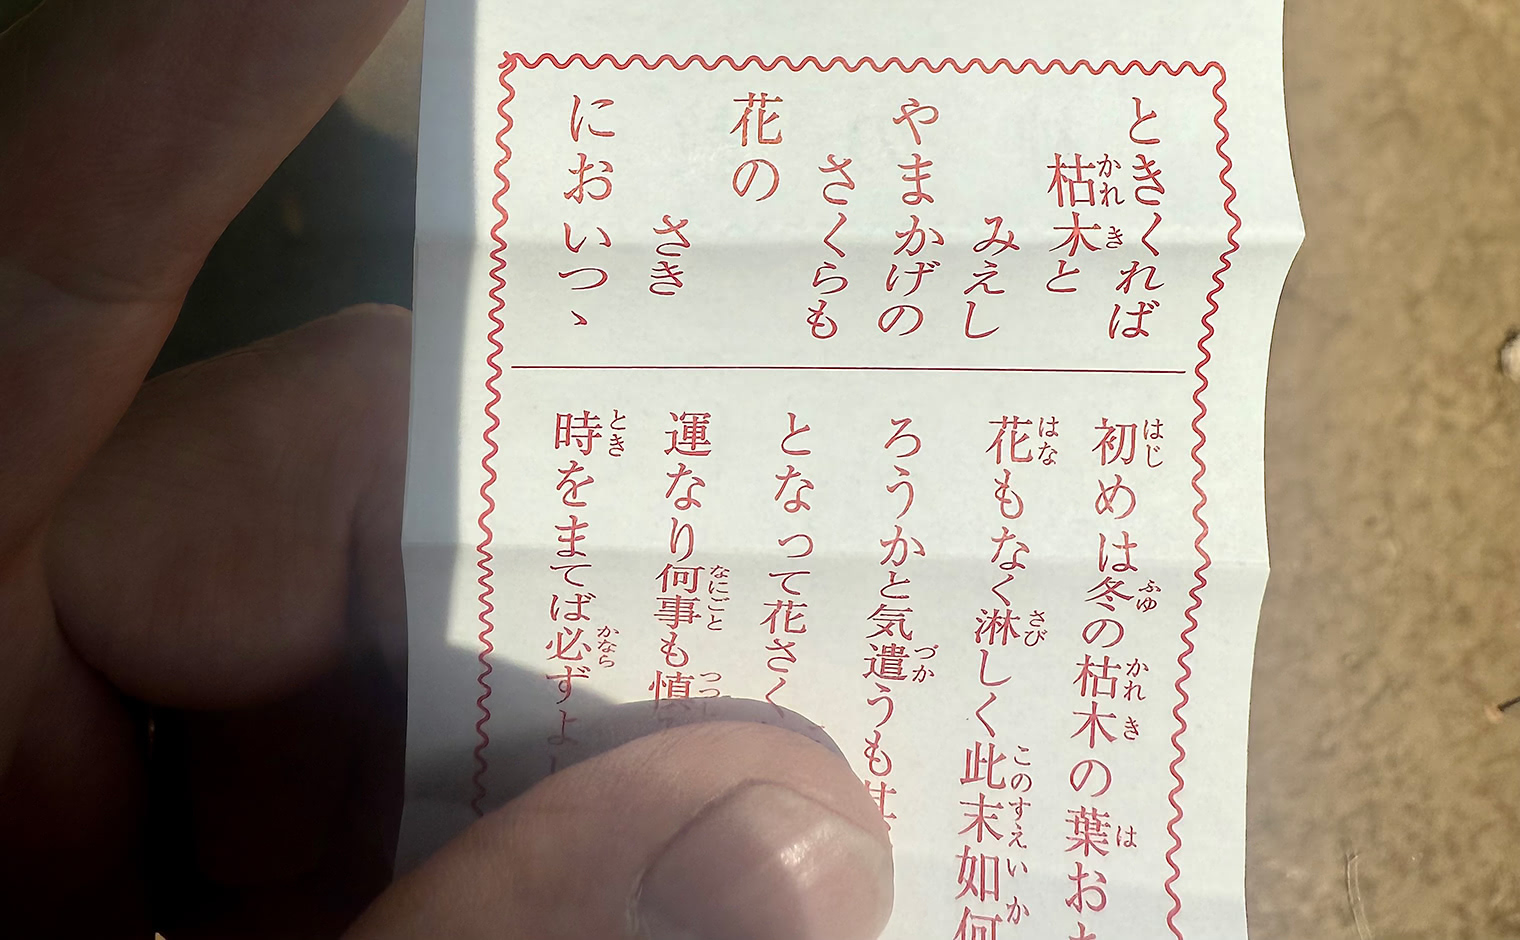 ときくれば
枯木と
みえし
やまかげの
さくらも
花の
さき
におい つゝ
初めは冬の枯木の葉お
花もなく淋しく此末如何
ろうかと気遣うも
となって花さく
運なり何事も慎
時をまてば必ずよ